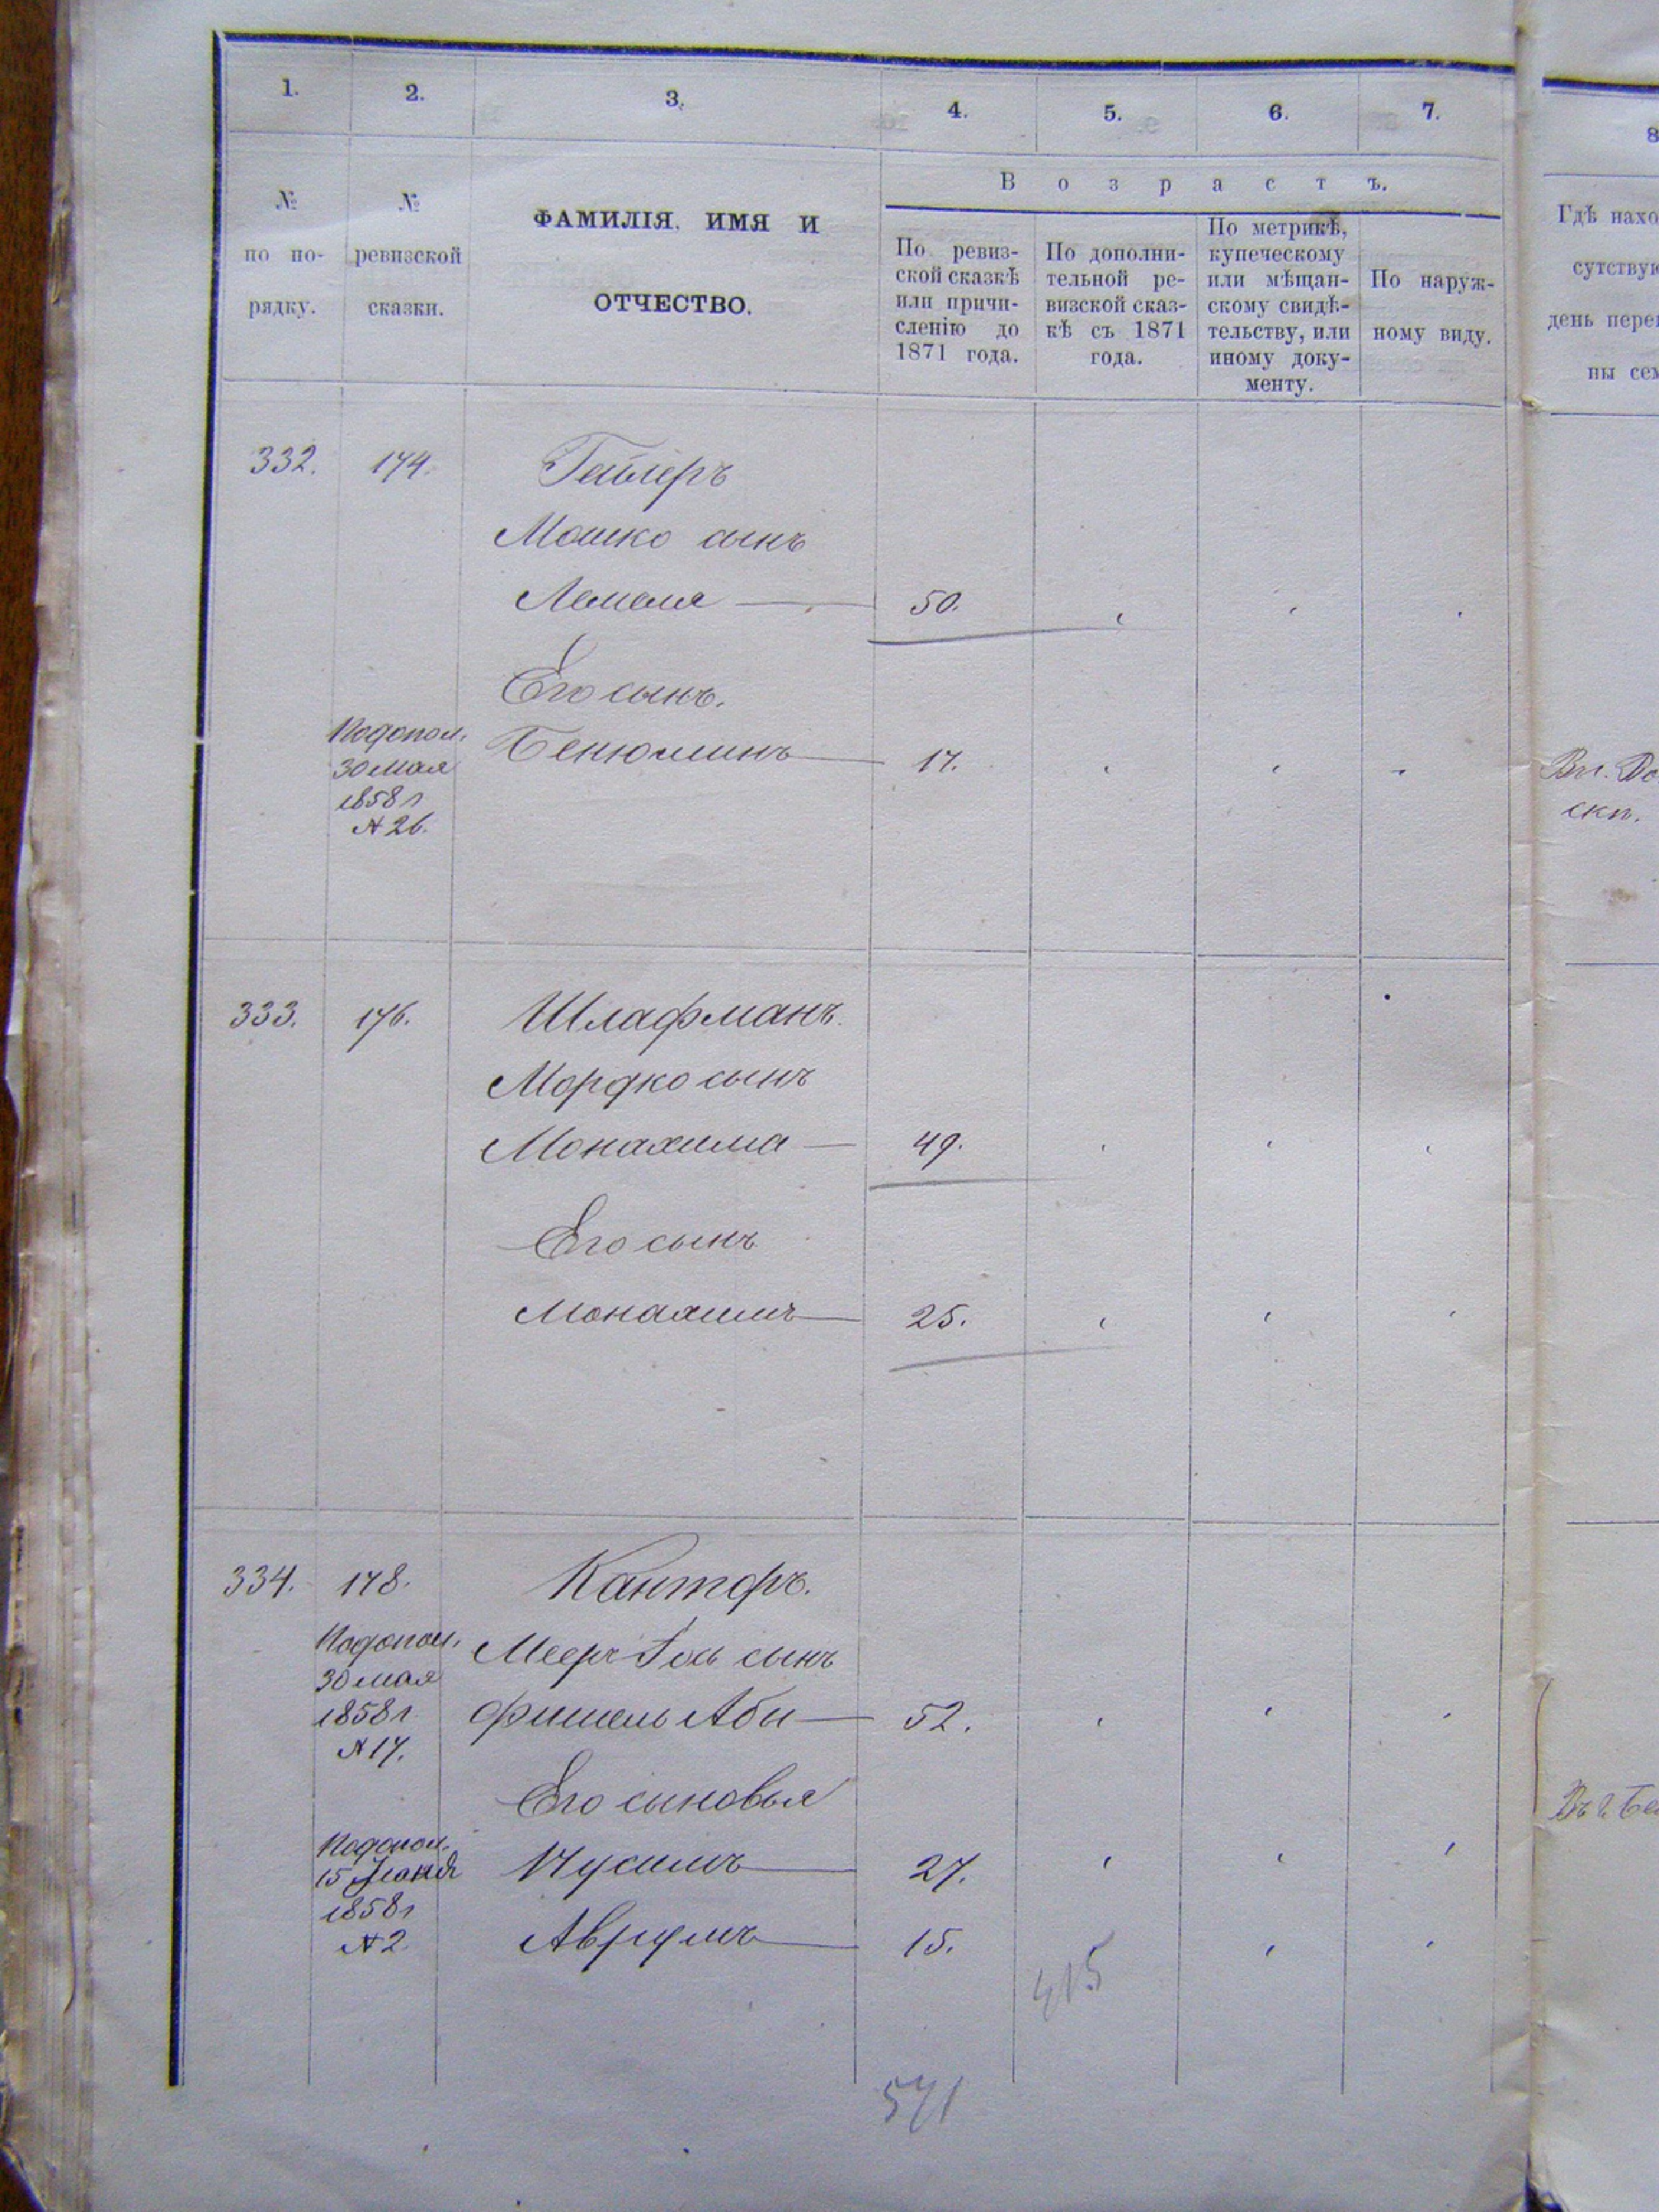 1. 2. 3. 4. 5. 6. 7. 8
В о з р а с т ъ.
№ по по- рядку.
№ ревизской сказки.
ФАМИЛІЯ, ИМЯ И
ОТЧЕСТВО.
По ревиз-
ской сказкѣ
или причи-
сленію до
1871 года.
По дополни-
тельной ре-
визской сказ-
кѣ съ 1871
года.
По метрикѣ,
купеческому
или мѣщан-
скому свидѣ-
тельству, или
иному доку-
менту.
По наруж-
ному виду.
Гдѣ нахо
сутствую
день пере
ны сем
332. 174. Гейлеръ
Мошко сынъ
Лемеля — 50.
Его сынъ.
Подопол.
30 Мая
1858 г
№ 26.
Бенюминъ — 17.
скп.
333. 176. Шлафманъ.
Мордко сынъ
Монахима — 49.
Его сынъ
Монахимъ — 25.
334. 178. Канторъ.
Подопол.
30 мая
1858 г
№ 17.
Мееръ Іось сынъ
Фишель Абы — 52.
Его сыновья
Подопол.
15 Іюня
1858 г
№ 2
Нусимъ — 27.
Аврумъ — 15.
415
571